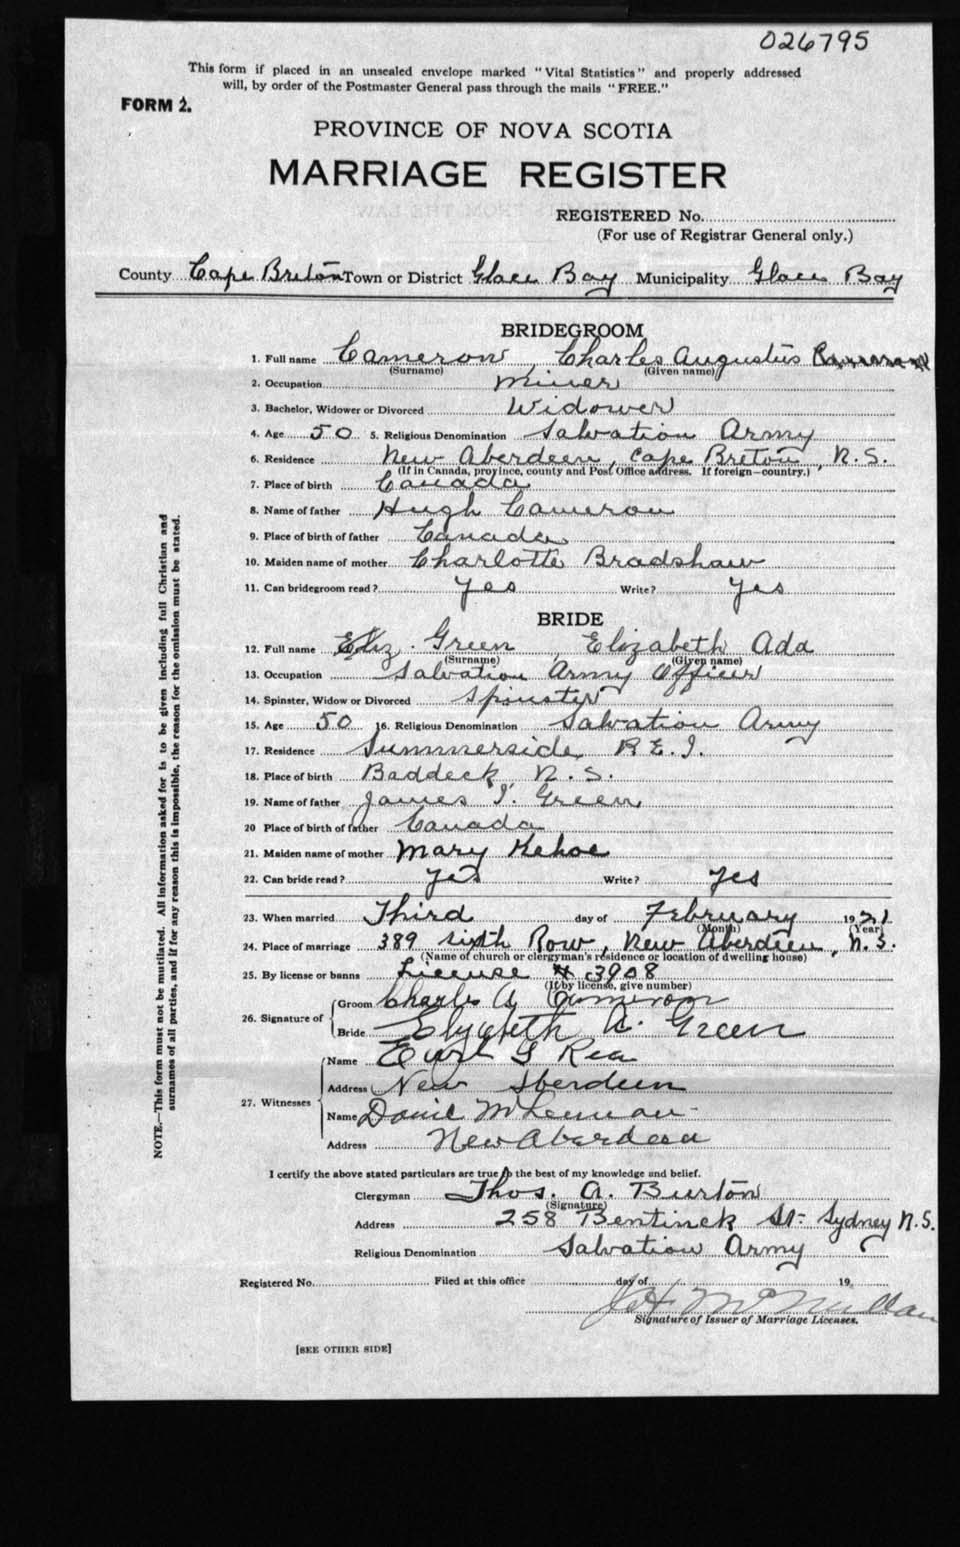 026795
This form if placed in an unsealed envelope marked "Vital Statistics" and properly addressed
will, by order of the Postmaster General pass through the mails "FREE."
FORM 2.
PROVINCE OF NOVA SCOTIA
MARRIAGE REGISTER
REGISTERED No.
(For use of Registrar General only.)
County Cape Breton Town or District Glace Bay Municipality Glace Bay
BRIDEGROOM
1. Full name Cameron, Charles Augustus
(Surname) (Given name)
2. Occupation Miner
3. Bachelor, Widower or Divorced Widower
4. Age 50 5. Religious Denomination Salvation Army
6. Residence New Aberdeen, Cape Breton, N.S.
(If in Canada, province, county and Post Office address. If foreign—country.)
7. Place of birth Canada
8. Name of father Hugh Cameron
9. Place of birth of father Canada
10. Maiden name of mother Charlotte Bradshaw
11. Can bridegroom read? Yes Write? Yes
BRIDE
12. Full name Eliz. Green, Elizabeth Ada
(Surname) (Given name)
13. Occupation Salvation Army Officer
14. Spinster, Widow or Divorced Spinster
15. Age 50 16. Religious Denomination Salvation Army
17. Residence Summerside P.E.I.
18. Place of birth Baddeck, N.S.
19. Name of father James I. Green
20 Place of birth of father Canada
21. Maiden name of mother Mary Kehoe
22. Can bride read? Yes Write? Yes
23. When married Third day of February 1921
(Month) (Year)
24. Place of marriage 389 Sixth Row, New Aberdeen, N.S.
(Name of church or clergyman's residence or location of dwelling house)
25. By license or banns License # 3908
(If by license, give number)
26. Signature of
Groom Charles A Cameron
Bride Elizabeth A. Green
27. Witnesses
Name Earl G Rea
Address New Aberdeen
Name
Address New Aberdeen
I certify the above stated particulars are true to the best of my knowledge and belief.
Clergyman Thos. A. Burton
(Signature)
Address 258 Bentinck St. Sydney N.S.
Religious Denomination Salvation Army
Registered No. Filed at this office day of 19
Signature of Issuer of Marriage Licenses.
[SEE OTHER SIDE]
NOTE.—This form must not be mutilated. All information asked for is to be given including full Christian and
surnames of all parties, and if for any reason this is impossible, the reason for the omission must be stated.